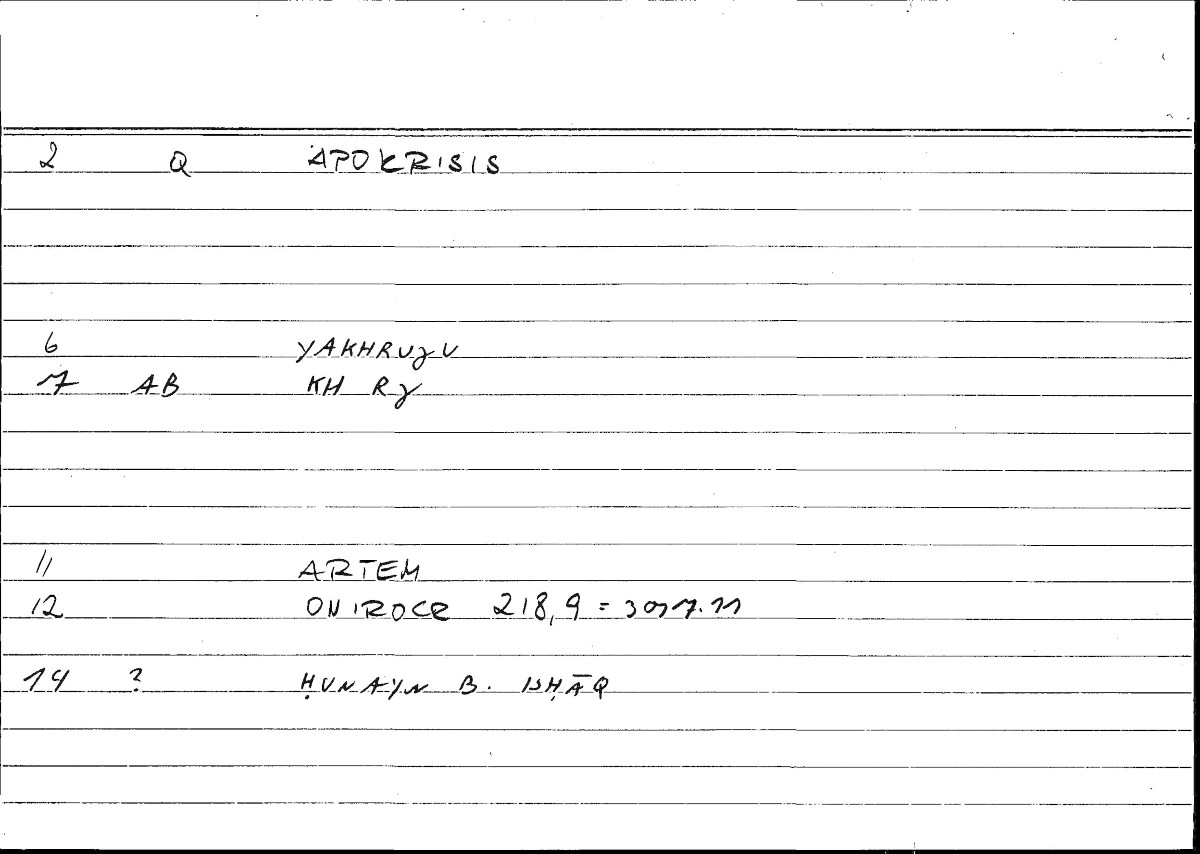 2 Q APOKRISIS
6 YAKHRUJU
7 AB KH RJ
11 ARTEM
12 ONIROCR 218,9 =
14 ? ḤUNAYN B. ISḤĀQ